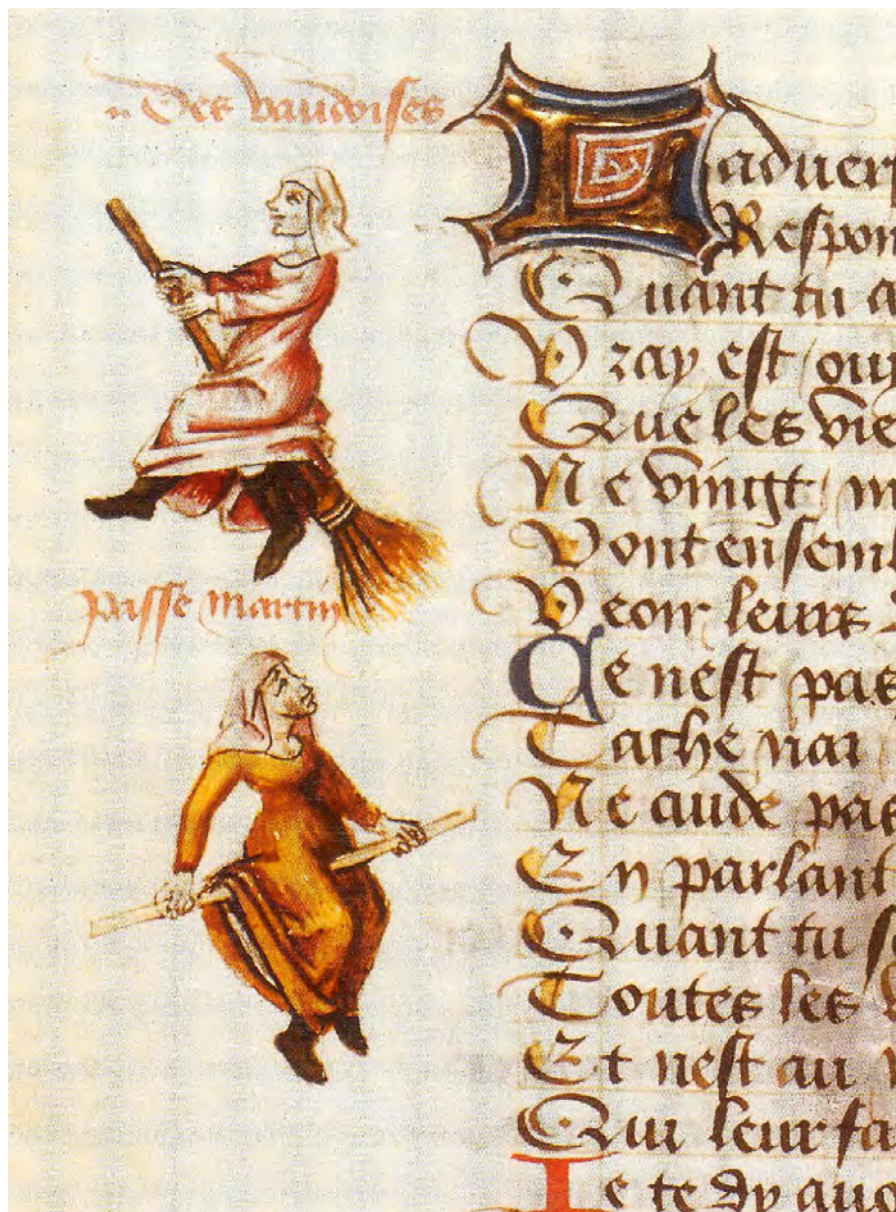 Des vaudoises
passe martin
Laduer
Respon
Quant tu a
Vray est ouy
Que les vie
Ne vingt m
Vont ensembl
Veoir leurs
Ce nest pas
Tache nai
Ne cuide pas
En parlant
Quant tu s
Toutes les
Et nest au
Qui leur fa
Ie te dy auo